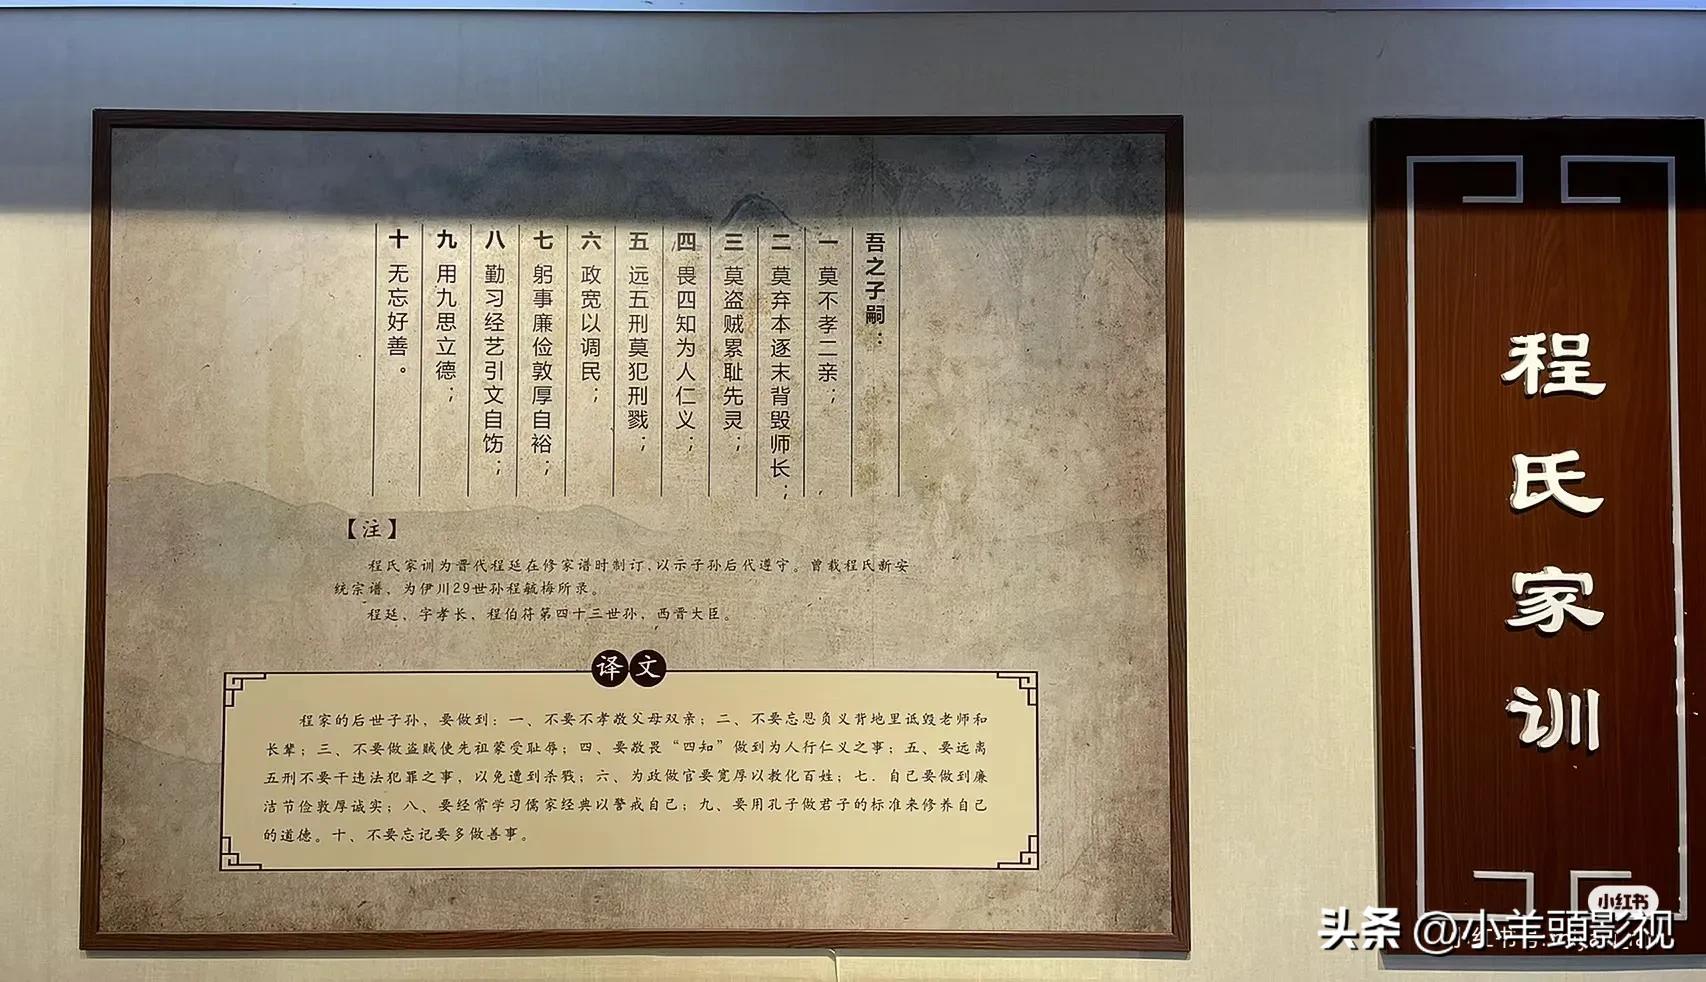 吾之子嗣：
一 莫不孝二亲；
二 莫弃本逐末背毁师长；
三 莫盗贼累耻先灵；
四 畏四知为人仁义；
五 远五刑莫犯刑戮；
六 政宽以调民；
七 躬事廉俭敦厚自裕；
八 勤习经艺引文自饬；
九 用九思立德；
十 无忘好善。
【注】
程氏家训为晋代程延在修家谱时制订，以示子孙后代遵守。曾载程氏新安
统宗谱、为伊川29世孙程敏梅所录。
程延、字孝长，程伯符第四十三世孙，西晋大臣。
译文
程家的后世子孙，要做到：一、不要不孝敬父母双亲；二、不要忘恩负义背地里诋毁老师和
长辈；三、不要做盗贼使先祖蒙受耻辱；四、要敬畏“四知”做到为人行仁义之事；五、要远离
五刑不要干违法犯罪之事，以免遭到杀戮；六、为政做官要宽厚以教化百姓；七．自己要做到廉
洁节俭敦厚诚实；八、要经常学习儒家经典以警戒自己；九、要用孔子做君子的标准来修养自己
的道德。十、不要忘记要多做善事。
程氏家训
小红书
头条 @小羊頭影视